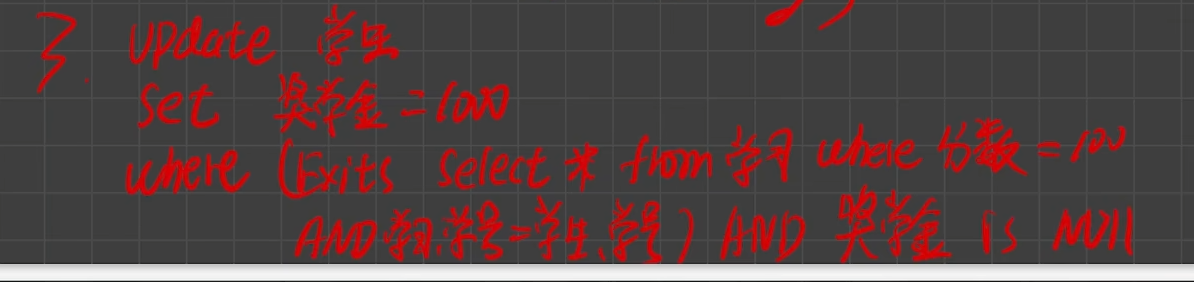 3. update 学生
set 奖学金 = 1000
where (Exits select * from 学习 where 分数 = 100
AND 学习.学号 = 学生.学号) AND 奖学金 is NUll